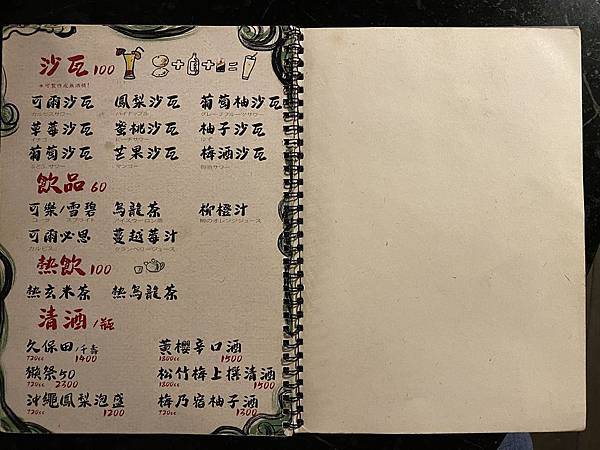 沙瓦 100
＊可製作成無酒精!
可爾沙瓦 鳳梨沙瓦 葡萄柚沙瓦
カルピスサワー パイナップル グレープフルーツサワー
草莓沙瓦 蜜桃沙瓦 柚子沙瓦
葡萄沙瓦 芒果沙瓦 梅酒沙瓦
飲品 60
可樂/雪碧 烏龍茶 柳橙汁
コーラ スプライト アイスウーロン茶
可爾必思 蔓越莓汁
カルピス クランベリージュース
熱飲 100
熱玄米茶 熱烏龍茶
清酒/瓶
久保田/千壽 黃櫻辛口酒
720cc 1400 1800cc 1500
獺祭50 松竹梅上撰清酒
720cc 2300 1800cc 1500
沖繩鳳梨泡盛 梅乃宿柚子酒
720cc 1200 720cc 1300